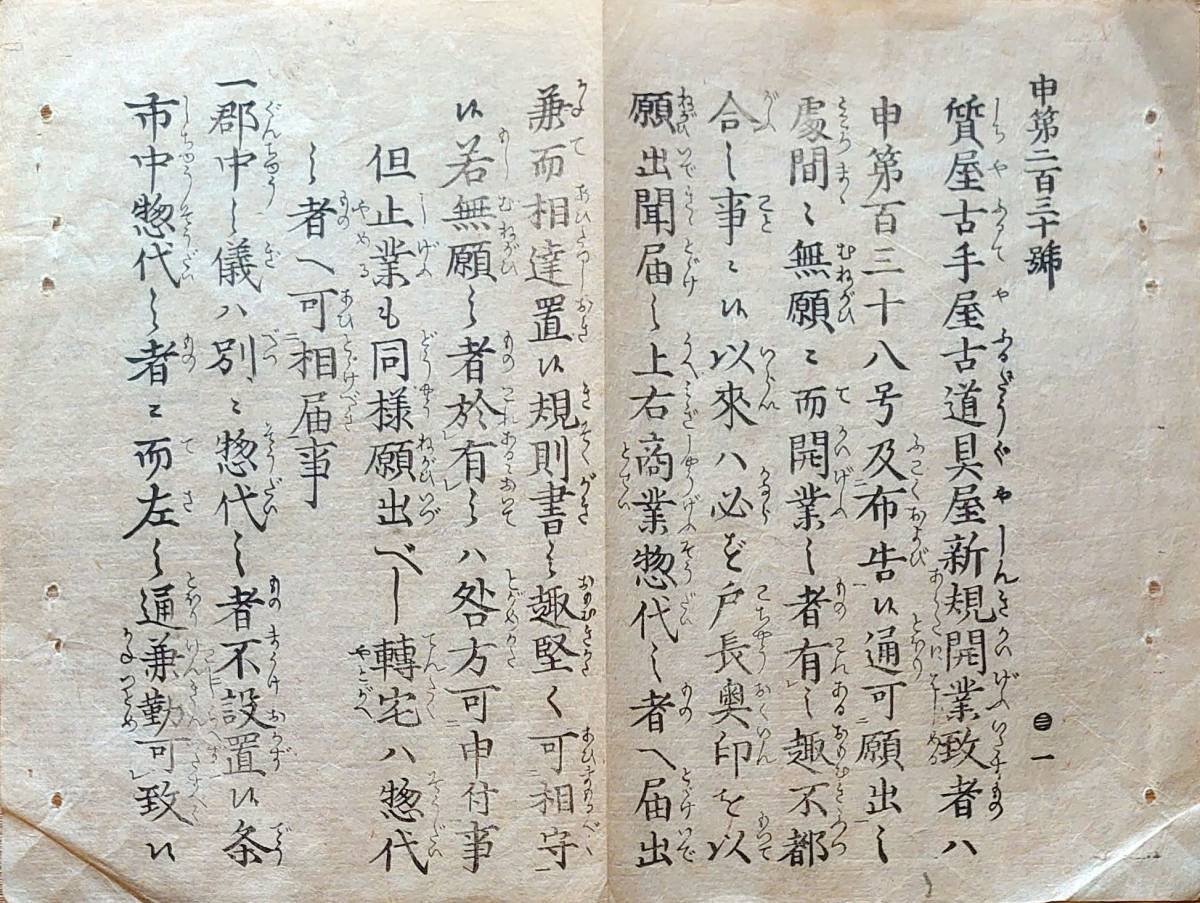 申第二百三十號
㊂一
質屋古手屋古道具屋新規開業致者ハ
申第百三十八号及布告候通可願出之
處間ニ無願ニ而開業之者有之趣不都
合之事ニ候以來ハ必ず戸長奥印を以
願出聞届之上右商業惣代之者へ届出
兼而相達置候規則書之趣堅く可相守
候若無願之者於有之ハ咎方可申付事
但止業も同様願出べし轉宅ハ惣代
之者へ可相届事
一郡中之儀ハ別ニ惣代之者不設置候条
市中惣代之者ニ而左之通兼勤可致候